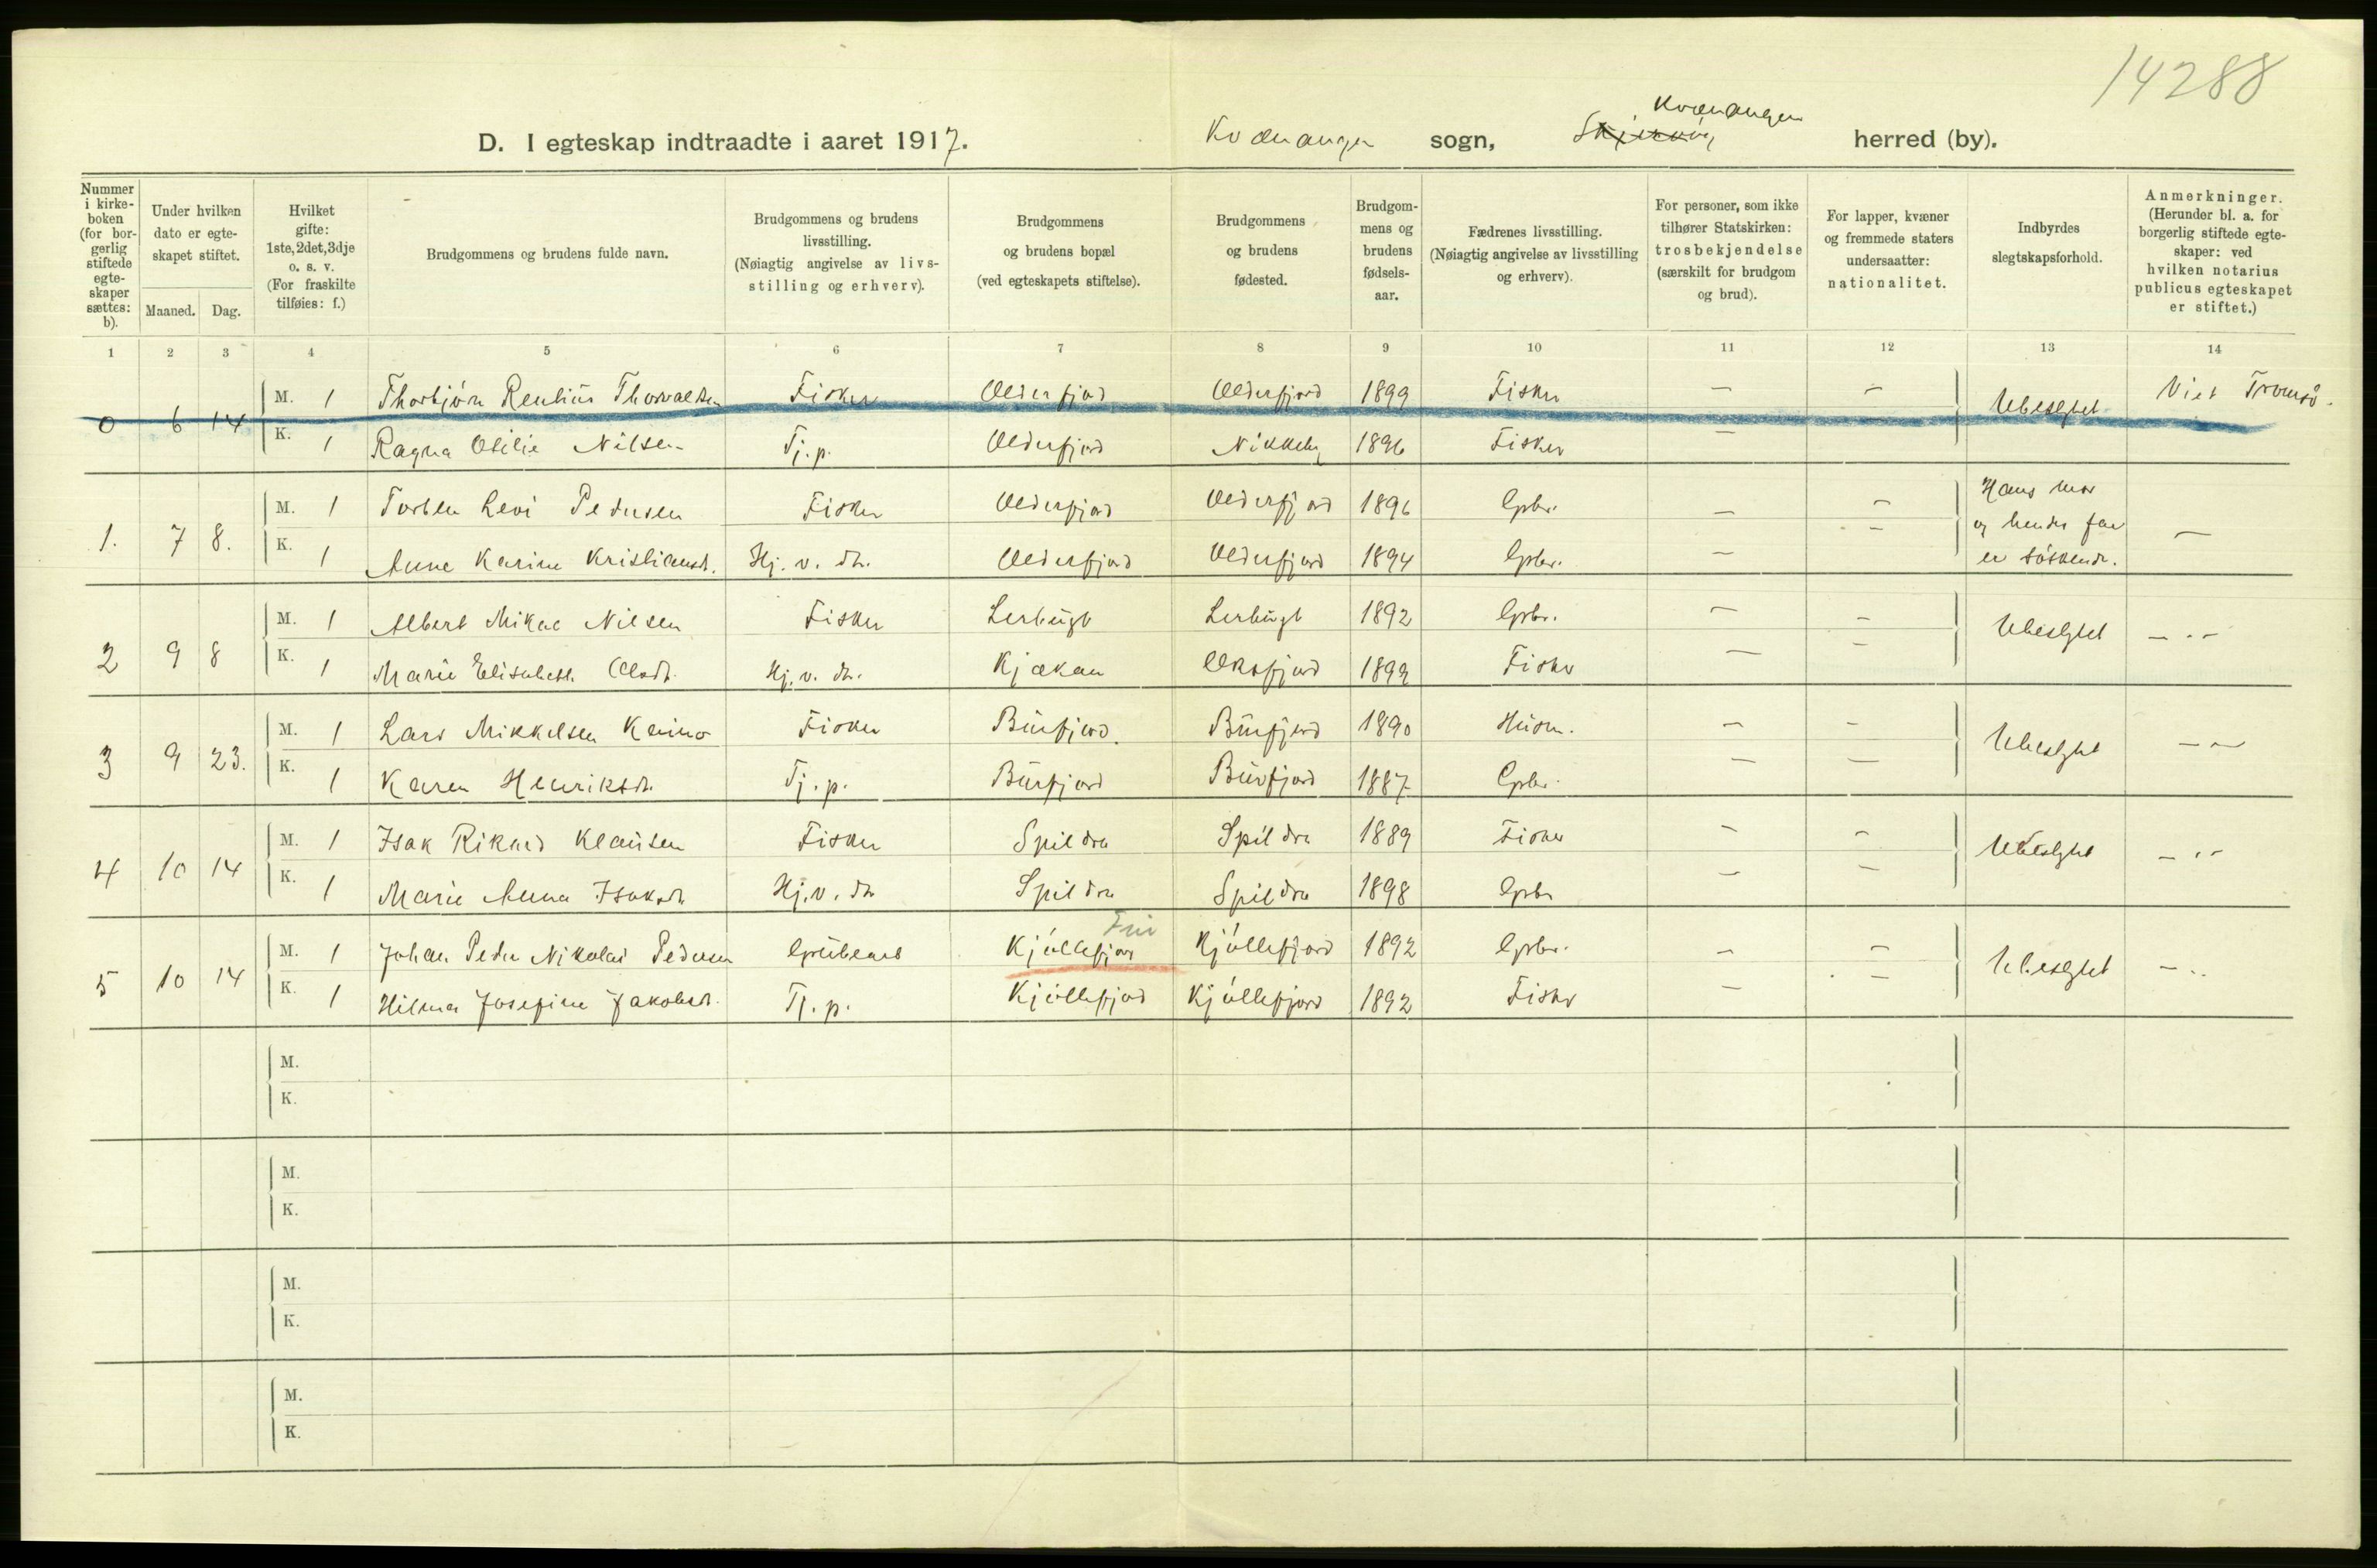 14288
D. I egteskap indtraadte i aaret 1917. Kvænangen sogn, Skjervøy Kvænangen herred (by).
Nummer i kirkeboken (for borgerlig stiftede egteskaper sættes: b).
Under hvilken dato er egteskapet stiftet.
Maaned. Dag.
Hvilket gifte: 1ste, 2det, 3dje o. s. v. (For fraskilte tilføies: f.)
Brudgommens og brudens fulde navn.
Brudgommens og brudens livsstilling. (Nøiagtig angivelse av livsstilling og erhverv).
Brudgommens og brudens bopæl (ved egteskapets stiftelse).
Brudgommens og brudens fødested.
Brudgommens og brudens fødselsaar.
Fædrenes livsstilling. (Nøiagtig angivelse av livsstilling og erhverv).
For personer, som ikke tilhører Statskirken: trosbekjendelse (særskilt for brudgom og brud).
For lapper, kvæner og fremmede staters undersaatter: nationalitet.
Indbyrdes slegtskapsforhold.
Anmerkninger. (Herunder bl. a. for borgerlig stiftede egteskaper: ved hvilken notarius publicus egteskapet er stiftet.)
1 2 3 4 5 6 7 8 9 10 11 12 13 14
0 6 14 M. 1 Thorbjörn Thorvaldsen Fisker Olderfjord Olderfjord 1899 Fisker — — Ubeslgtet Viet Tromsö.
K. 1 Ragna Otilie Nilsen Tj. p. Olderfjord Nikkeby 1896 Fisker —
1. 7 8. M. 1 Torben Levi Pedersen Fisker Olderfjord Olderfjord 1896 Gpbr. — — Hans mor og hendes far er söskende. —
K. 1 Anne Karine Kristiansd. Hj. v. dr. Olderfjord Olderfjord 1894 Gpbr. — —
2 9 8 M. 1 Albert Mikal Nilsen Fisker Lerbugt Lerbugt 1892 Gpbr. — — Ubeslgtet — " —
K. 1 Marie Elisabeth Olsdr. Hj. v. dr. Kjækan Oksfjord 1892 Fisker — —
3 9 23. M. 1 Lars Mikkelsen Keino Fisker Burfjord. Burfjord 1890 Husm. — — Ubeslgtet — " —
K. 1 Karen Henriksdr. Tj. p. Burfjord Burfjord 1887 Gpbr. — —
4 10 14 M. 1 Isak Rikard Klausen Fisker Spildra Spildra 1889 Fisker — — Ubeslgtet — " —
K. 1 Marie Anna Isaksdr. Hj. v. dr Spildra Spildra 1898 Gpbr — —
Fin
5 10 14 M. 1 Johan Peder Nikolai Pedersen Kjöllefjord Kjöllefjord 1892 Gpbr. — — Ubeslgtet — "
K. 1 Hilma Josefine Jakobsd. Tj. p. Kjöllefjord Kjöllefjord 1892 Fisker — —
M.
K.
M.
K.
M.
K.
M.
K.